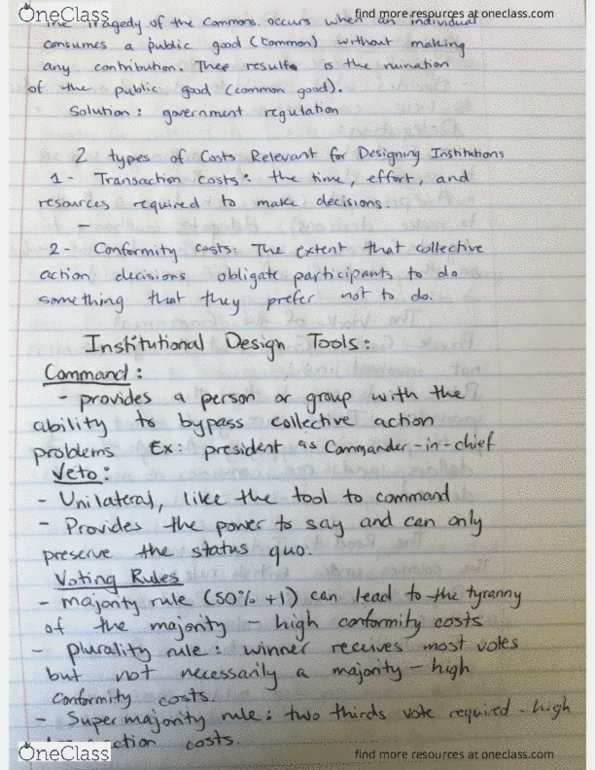 OneClass
find more resources at oneclass.com
The Tragedy of the Commons occurs when an individual
consumes a public good (common) without making
any contribution. Thee results is the ruination
of the public good (common good).
Solution: government regulation
2 types of Costs Relevant for Designing Institutions
1- Transaction costs: the time, effort, and
resources required to make decisions.
-
2- Conformity costs: The extent that collective
action decisions obligate participants to do
something that they prefer not to do.
Institutional Design Tools:
Command:
- provides a person or group with the
ability to bypass collective action
problems Ex: president as Commander-in-chief
Veto:
- Unilateral, like the tool to command
- Provides the power to say and can only
preserve the status quo.
Voting Rules
- majority rule (50% +1) can lead to the tyranny
of the majority - high conformity costs
- plurality rule: winner receives most votes
but not necessarily a majority - high
conformity costs.
- Super majority rule: two thirds vote required - high
costs.
OneClass
find more resources at oneclass.com